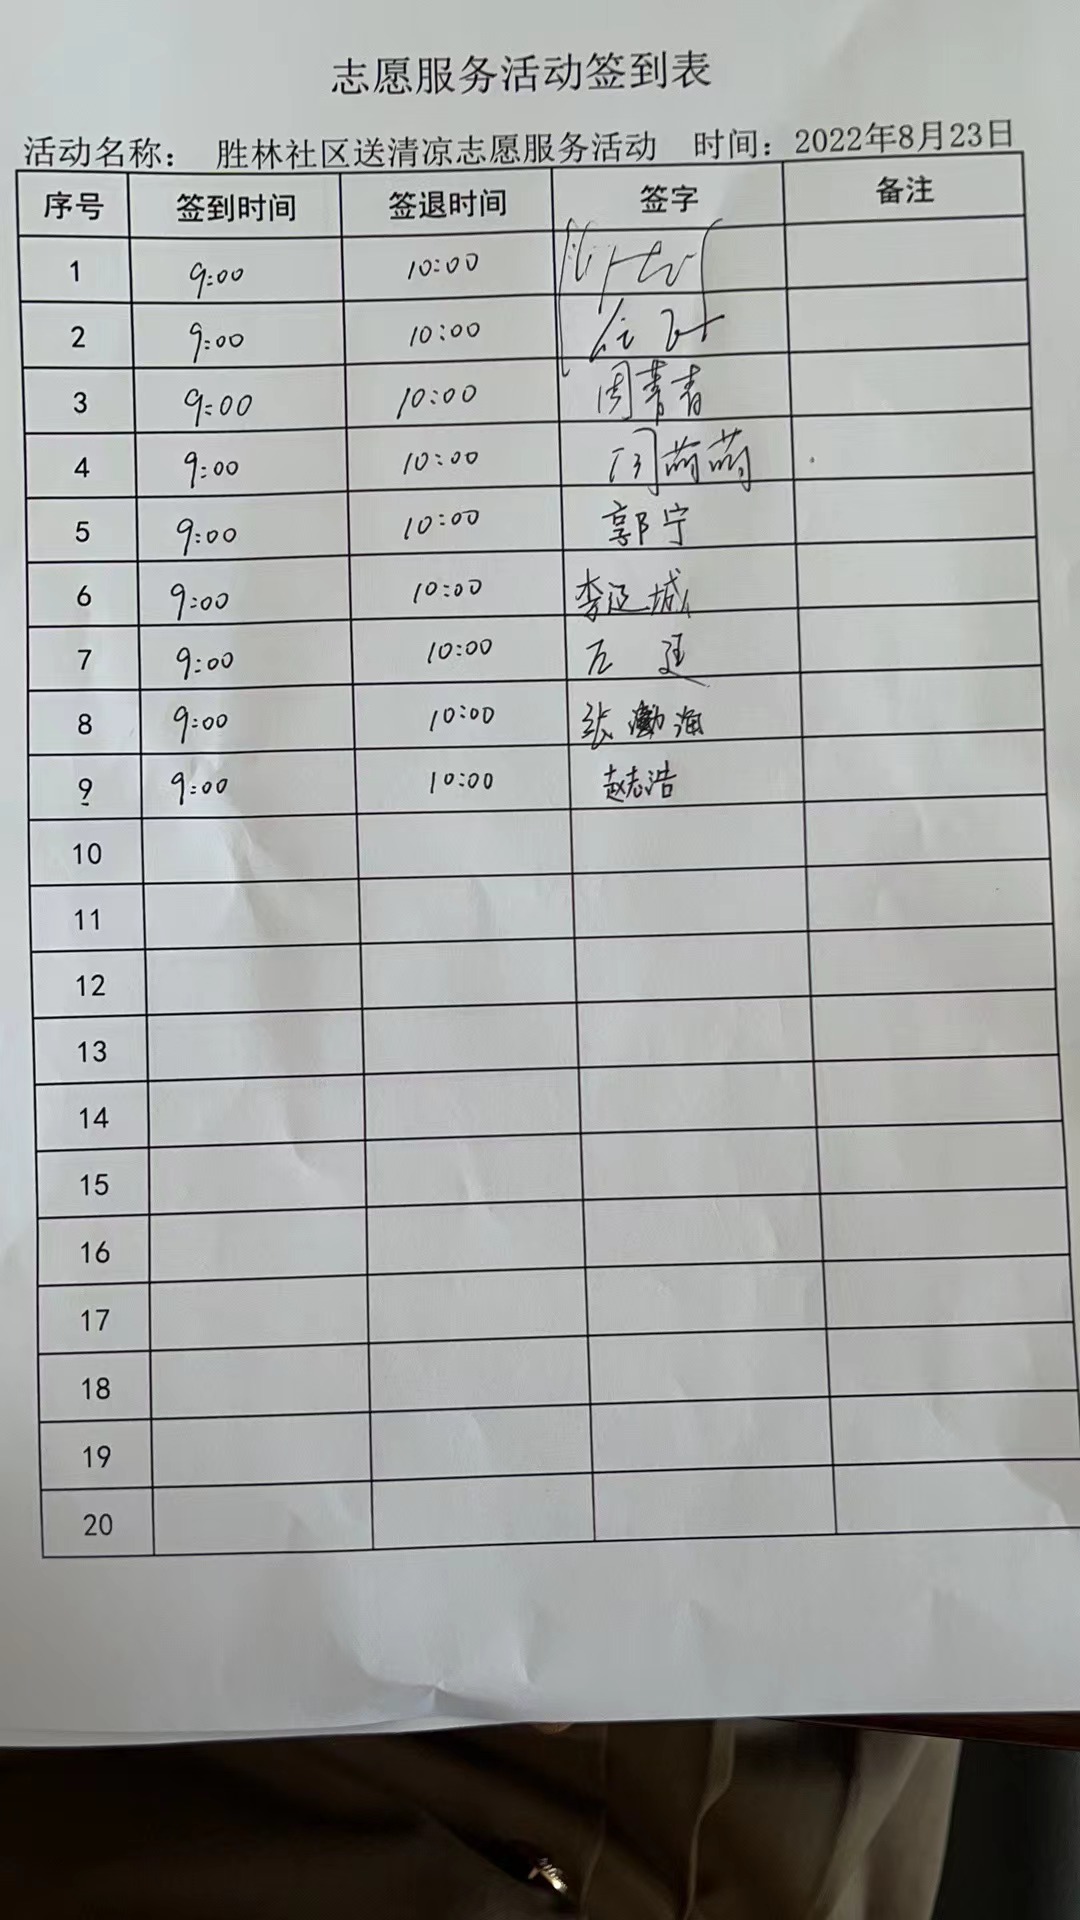 志愿服务活动签到表
活动名称： 胜林社区送清凉志愿服务活动 时间：2022年8月23日
序号 签到时间 签退时间 签字 备注
1 9:00 10:00
2 9:00 10:00
3 9:00 10:00 周菁青
4 9:00 10:00 闫萌萌
5 9:00 10:00 郭宁
6 9:00 10:00 李延城
7 9:00 10:00
8 9:00 10:00 张渤海
9 9:00 10:00 赵志浩
10
11
12
13
14
15
16
17
18
19
20